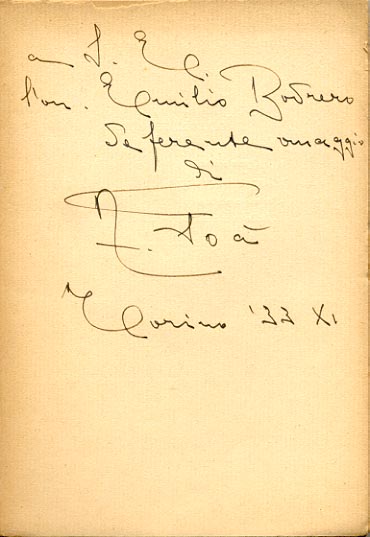 a S. E.
l'on. Emilio Bodrero
deferente omaggio
di
Foà
Torino '33 XI